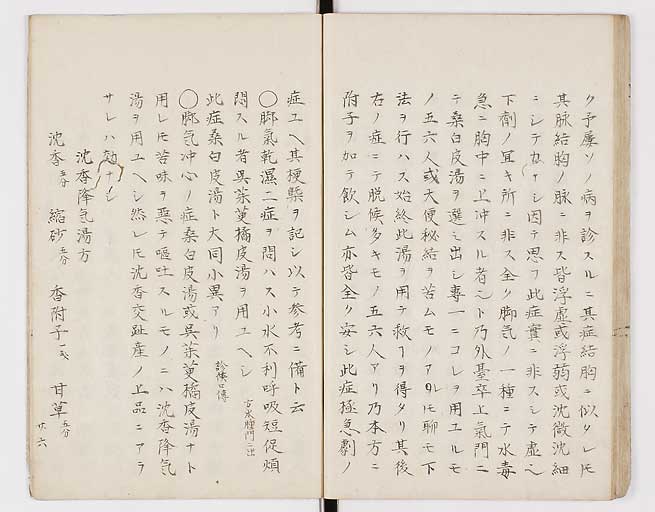 ク予屢ソノ病ヲ診スルニ其症結胸ニ似タレ𪜈
其脉結胸ノ脉ニ非ス皆浮虚或浮弱或沈微沈細
ニシテカナシ因テ思フ此症實ニ非スシテ虚也
下劑ノ冝キ所ニ非ス全ク脚気ノ一種ニテ水毒
急ニ胸中ニ上冲スル者ント乃外臺卒上氣門ニ
テ桑白皮湯ヲ選ミ出シ専一ニコレヲ用ユルモ
ノ五六人或大便秘結ヲ苦ムモノアル𪜈聊モ下
法ヲ行ハス始終此湯ヲ用テ救フヿヲ得タリ其後
右ノ症ニテ脱候多キモノ五六人アリ乃本方ニ
附子ヲ加テ飲シム亦皆全ク安シ此症極急劇ノ
症ユヘ其梗槩ヲ記シ以テ参考ニ備ト云
〇脚氣乾濕二症ヲ問ハス小水不利呼吸短促煩
悶スル者呉茱萸橘皮湯ヲ用ユヘシ
此症桑白皮湯ト大同小異アリ 診候口傳
〇脚気冲心ノ症桑白皮湯或呉茱萸橘皮湯ナト
用レ𪜈苦味ヲ悪テ嘔吐スルモノニハ沈香降気
湯ヲ用ユヘシ然レ𪜈沈香交趾産ノ上品ニアラ
サレハ効ナシ
沈香降气湯方
沈香 五分 縮砂 五分 香附子 二戔 甘草 五分
廿六